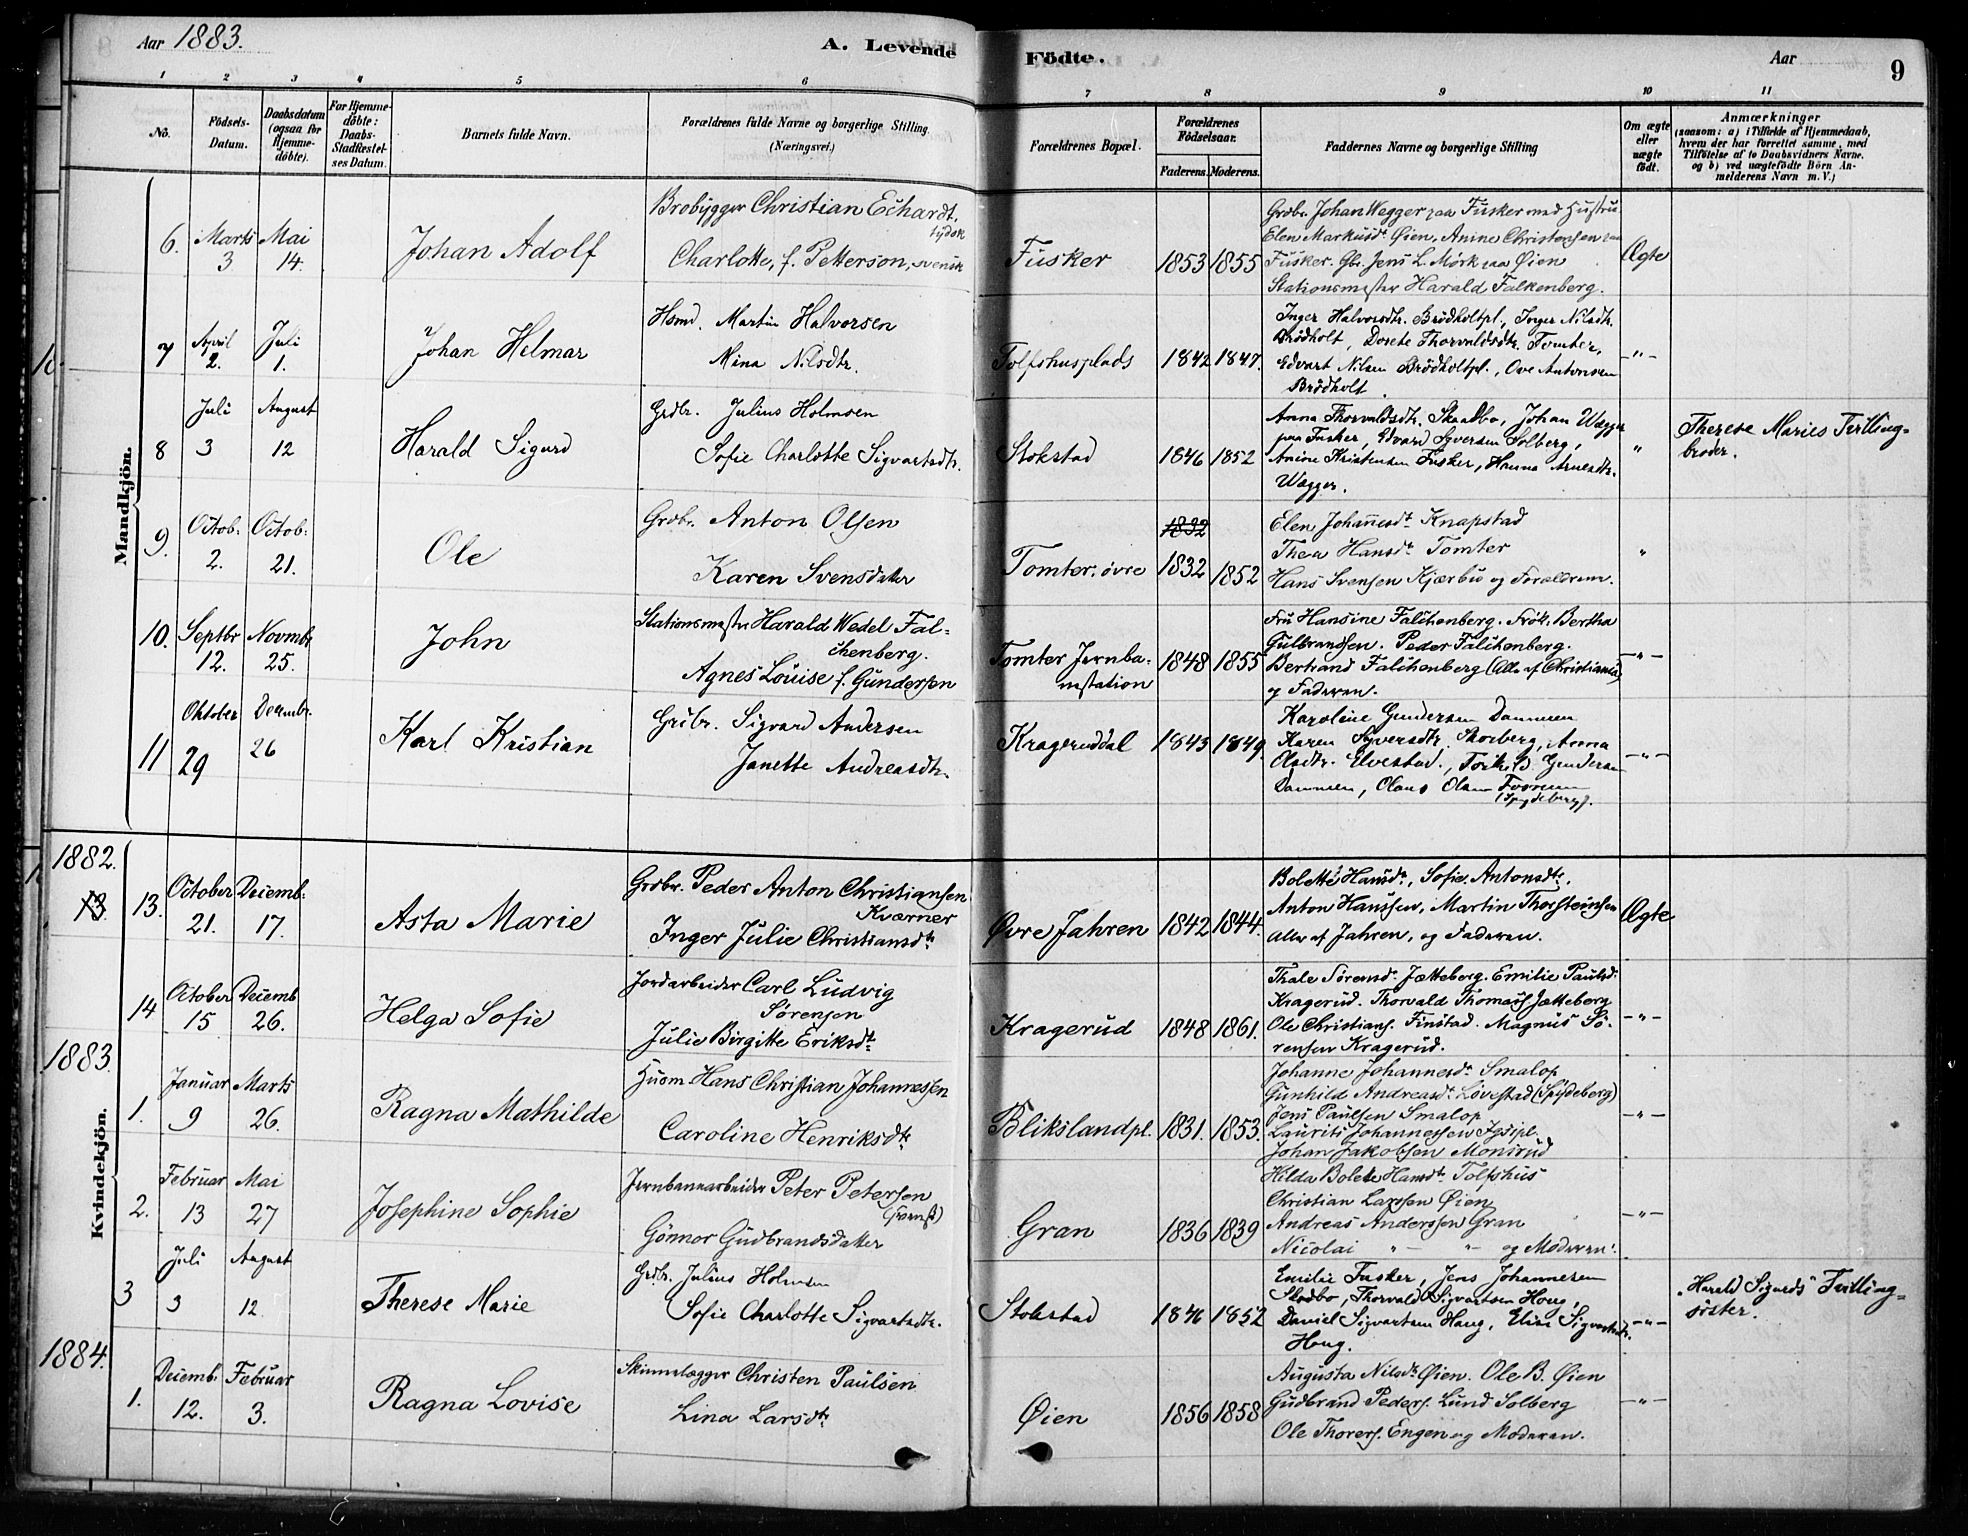 Aar 1883.
A. Levende
Födte.
Aar
9
1 2 3 4 5 6 7 8 9 10 11
No.
Födsels-
Datum.
Daabsdatum
(ogsaa for
Hjemme-
døbte).
For Hjemme-
döbte:
Daabs-
Stadfæstel-
ses Datum.
Barnets fulde Navn.
Forældrenes fulde Navne og borgerlige Stilling
(Næringsvei.)
Forældrenes Bopæl.
Forældrenes
Födselsaar.
Faderens. Moderens.
Faddernes Navne og borgerlige Stilling
Om ægte
eller
uægte
födt.
Anmærkninger
(saasom: a) i Tilfælde af Hjemmedaab,
hvem der har forrettet samme, med
Tilföielse af to Daabsvidners Navne,
og b) ved uægtefödte Börn An-
melderens Navn m. V.)
Mandkjön.
6. Marts 3 Mai 14.
Johan Adolf
Brobygger Christian Echardt.
tydsk
Charlotte, f. Petterson, svensk
Fusker
1853 1855
Grdbr. Johan Wegger paa Fusker med Hustru
Elen Markusdt. Øien, Anine Christensen paa
Fusker. Gbr. Jens L. Mörk paa Øien
Stationsmester Harald Falkenberg.
Ægte
7 April 2. Juli 1.
Johan Helmar
Hsmd. Martin Halvorsen
Mina Nilsdtr.
Tolfshusplads
1842 1847.
Inger Halvorsdtr. Brödholtpl., Inger Nilsdtr.
Brödholt, Dorete Thorvaldsdtr. Tomter,
Edvart Nilsen Brödholtpl., Ove Antonsen
Brödholt.
-"-
8 Juli 3 August 12
Harald Sigurd
Grdbr. Julius Holmsen
Sofie Charlotte Sigvartsdtr.
Stokstad
1846 1852
Anna Thorvaldsdtr. Skadbo, Johan Wegger
paa Fusker, Edvard Syversen Solberg,
Anine Kristensen Fusker, Hanna Arnesdtr.
Wegger.
"
Therese Maries Tvilling-
broder.
9. Octob: 2. Octob: 21.
Ole
Grdbr. Anton Olsen
Karen Svensdater
Tomter, øvre
1832
1832 1852
Elen Johannesdt. Knapstad
Thea Hansdt. Tomter
Hans Svensen Kjærbu og Forældrene.
"
10. Septbr 12. Novmbr 25.
John
Stationsmester Harald Wedel Fal-
chenberg.
Agnes Louise f. Gundersen
Tomter Jernba-
nestation
1848 1855
Fru Hansine Falchenberg. Frök. Bertha
Gulbrandsen. Peder Falchenberg.
Bertrand Falchenberg (Alle af Christiania)
og Faderen.
-"-
11 Oktober 29 Decembr. 26
Karl Kristian
Grdbr. Sigvard Andersen
Janette Andreasdtr.
Krageruddal
1843 1849.
Karoline Gundersen Dammen
Karen Syversdtr. Skorberg, Anna
Olsdtr. Elvestad., Gundersen
Dammen, Olaus Olsen
(Spydeberg).
-"-
1882.
Kvindekjön.
13.
13. October 21. Decemb: 17.
Asta Marie
Grdbr. Peder Anton Christiansen
Kværner
Inger Julie Christiansdtr
Øvre Jahren
1842 1844.
Bolette Hansdt., Sofie Antonsdt.,
Anton Hanssen, Martin Thorsteinsen
Alle af Jahren, og Faderen.
Ægte
14 October 15 Decemb 26.
Helga Sofie
Jordarbeider Carl Ludvig
Sørensen
Julie Birgitte Eriksdt.
Kragerud
1848 1861.
Thale Sørensdt. Jætteberg. Emilie Paulsd.
Kragerud. Thorvald Thomass Jætteberg
Ole Christians. Finstad. Magnus Sö-
rensen Kragerud.
-"-
1883.
1. Januar 9 Marts 26.
Ragna Mathilde
Husm Hans Christian Johannessen
Caroline Henriksdt.
Blikslandpl.
1831. 1853.
Johanne Johannesdt. Smalop
Gunhild Andreasdt. Løvestad (Spydeberg)
Jens Paulsen Smalop
Lauritz Johannessen
Johan Jakobsen Monsrud
-"-
2. Februar 13 Mai 27
Josephine Sophie
Jernbanearbeider Peter Petersen
(svensk)
Gønnor Gudbrandsdater
Gran
1836 1839
Hilda Bolette Hansdt. Tolfshus
Christian Larssen Øien
Andreas Anderssen Gran
Nicolai -"- -"- og Moderen.
-"-
3 Juli 3 August 12
Therese Marie
Grdbr. Julius Holmsen
Sofie Charlotte Sigvartsdtr.
Stokstad
1846 1852
Emilie Fusker, Jens Johannesen
Skadbo, Thorvald Sigvartsen Haug,
Daniel Sigvartsen Haug, Elise Sigvartsdtr.
Haug.
-"-
"Harald Sigurds" Tvilling-
söster.
1884.
1. Decemb. 12. Februar 3.
Ragna Lovise
Skinnelægger Christen Paulsen
Lina Larsdt.
Øien
1856 1858
Augusta Nilsdt. Øien. Ole B. Øien
Gudbrand Peders. Lund. Solberg
Ole Thorers. Engen og Moderen.
-"-